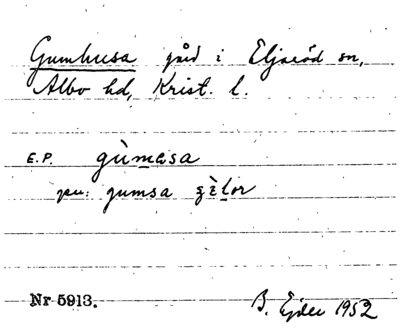 Gumhusa gård i Eljaröd sn,
Albo hd, Krist. l.
E.P. gùmasa
pu: gumsa
Nr 5913. B. Ejder 1952